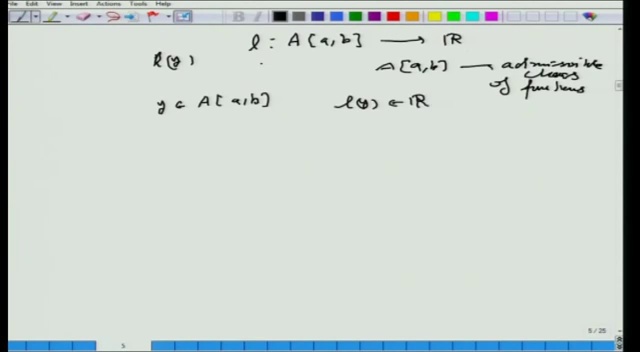 File Edit View Insert Actions Tools Help
l : A[a,b] ⟶ ℝ
l(y)
A[a,b] — admissible
class
of functions
y ∈ A[a,b] l(y) ∈ ℝ
5 / 25
5